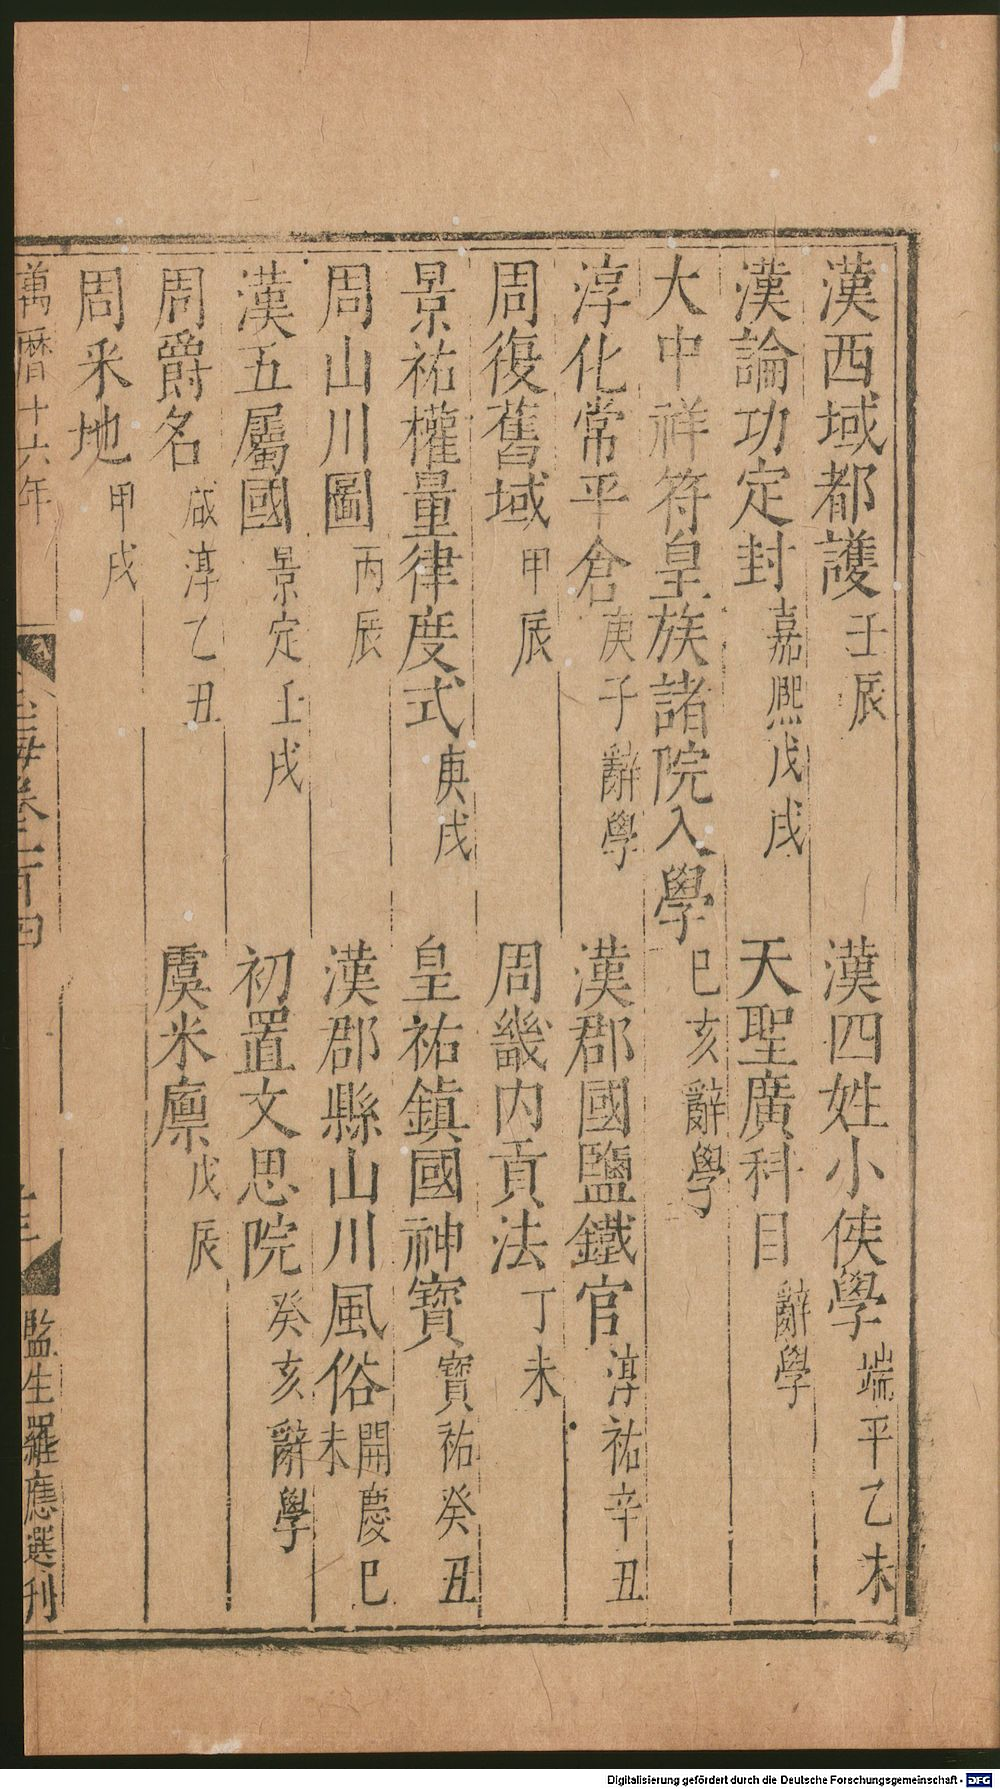 漢西域都護 壬辰 漢四姓小侯學 端平乙未
漢論功定封 嘉熈戊戌 天聖廣科目 辭學
大中祥符皇族諸院入學 巳亥辭學
淳化常平倉 庚子辭學 漢郡國鹽鐵官 淳祐辛丑
周復舊域 甲辰 周畿内貢法 丁未
景祐權量律度式 庚戌 皇祐鎮國神寳 寳祐癸丑
周山川圖 丙辰 漢郡縣山川風俗 開慶巳未
漢五屬國 景定壬戌 初置文思院 癸亥辭學
周爵名 咸淳乙丑 虞米廪 戊辰
周釆地 甲戌
萬曆十六年 海卷二百四 監生羅應選刊
Digitalisierung gefördert durch die Deutsche Forschungsgemeinschaft - DFG